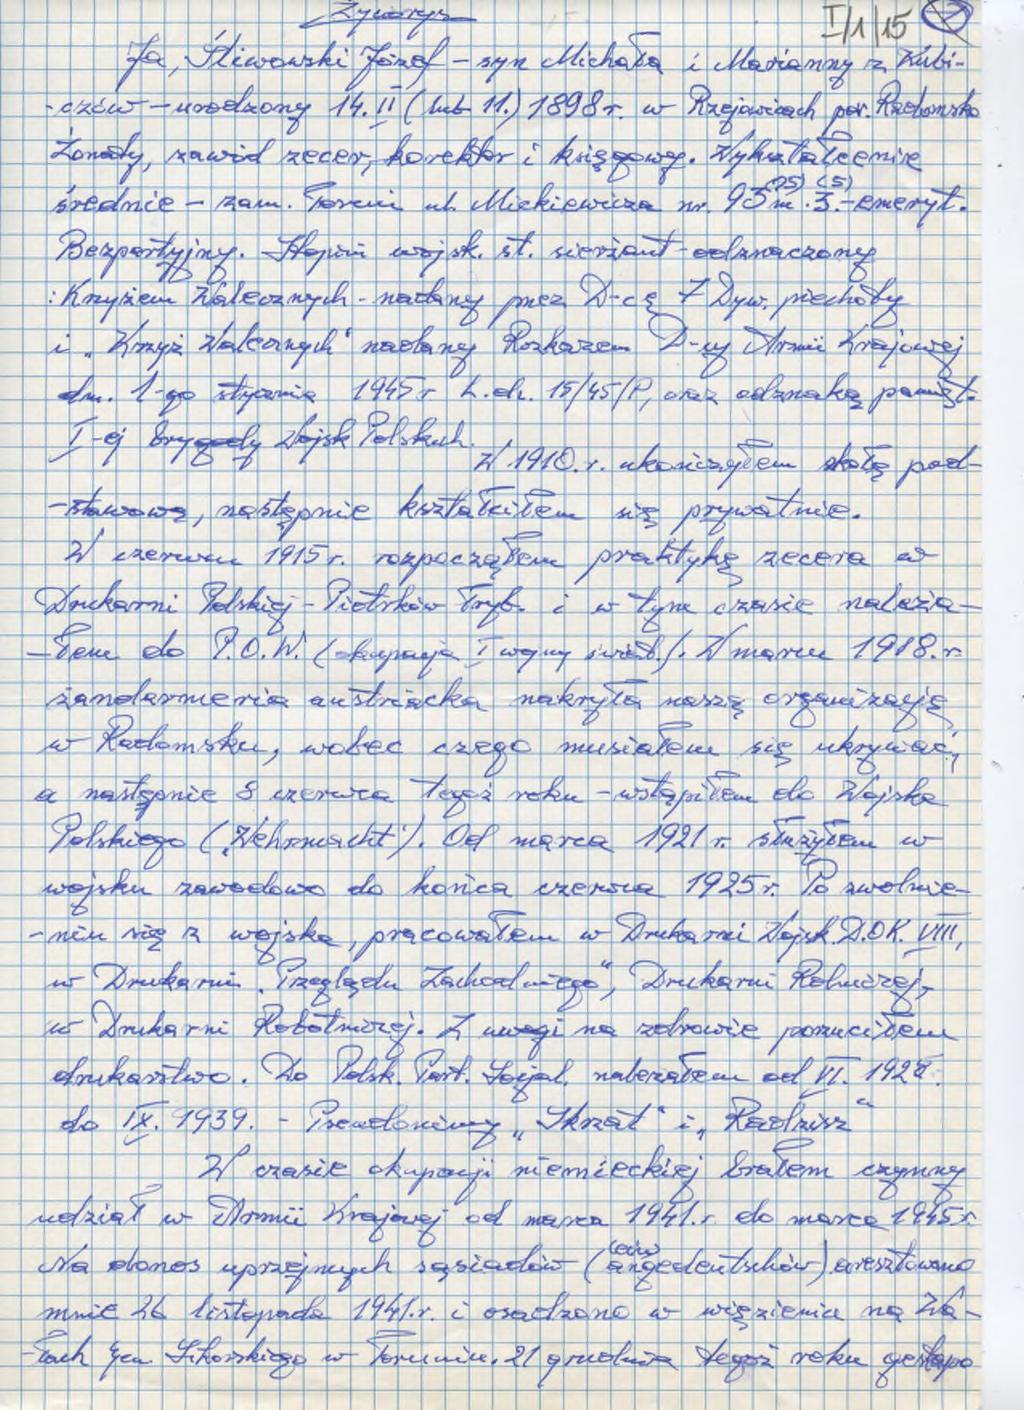 Życiorys
I/1/15
Ja, Śliwowski Józef – syn Michała i Marianny z Kubi-
-czów – urodzony 14.II (lub 11.) 1898 r. w Rzejowicach pow. Radomsko
Żonaty, zawód zecer, korektor i księgowy. Wykształcenie
średnie – zam. Toruń ul. Mickiewicza nr. 93 m. 3. – emeryt.
Bezpartyjny. Stopień wojsk. st. sierżant – odznaczony
: Krzyżem Walecznych – nadany przez D-cę 7 Dyw. piechoty
i „Krzyż Walecznych" nadany Rozkazem D-cy Armii Krajowej
dn. 1-go stycznia 1945 r L.dz. 15/45/P, oraz odznaką pamiąt.
I-ej Brygady Wojsk Polskich.
W 1910. r. ukończyłem szkołę pod-
-stawową, następnie kształciłem się prywatnie.
W czerwcu 1915 r. rozpocząłem praktykę zecera w
Drukarni Polskiej – Piotrków Tryb. i w tym czasie należa-
-łem do P.O.W. (okupacja I wojny świat.). W marcu 1918. r.
żandarmeria austriacka nakryła naszą organizację
w Radomsku, wobec czego musiałem się ukrywać,
a następnie 8 czerwca tegoż roku – wstąpiłem do Wojska
Polskiego („Wehrmacht"). Od marca 1921 r. służyłem w
wojsku zawodowo do końca czerwca 1925 r. Po zwolnie-
-niu się z wojska, pracowałem w Drukarni Wojsk. D.O.K. VIII,
w Drukarni „Przeglądu Zachodniego", Drukarni Rolniczej,
w Drukarni Robotniczej. Z uwagi na zdrowie porzuciłem
drukarstwo. Do Polsk. Part. Socjal. należałem od VI.
do IX. 1939. – Pseudonimy „Skrzat" i „Radzisz"
W czasie okupacji niemieckiej brałem czynny
udział w Armii Krajowej od marca 1941. r. do marca 1945 r.
Na donos uprzejmych sąsiadów ( ) aresztowano
mnie 26 listopada 1941. r. i osadzono w więzieniu na Wa-
-łach Gen. Sikorskiego w Toruniu. 21 grudnia tegoż roku gestapo